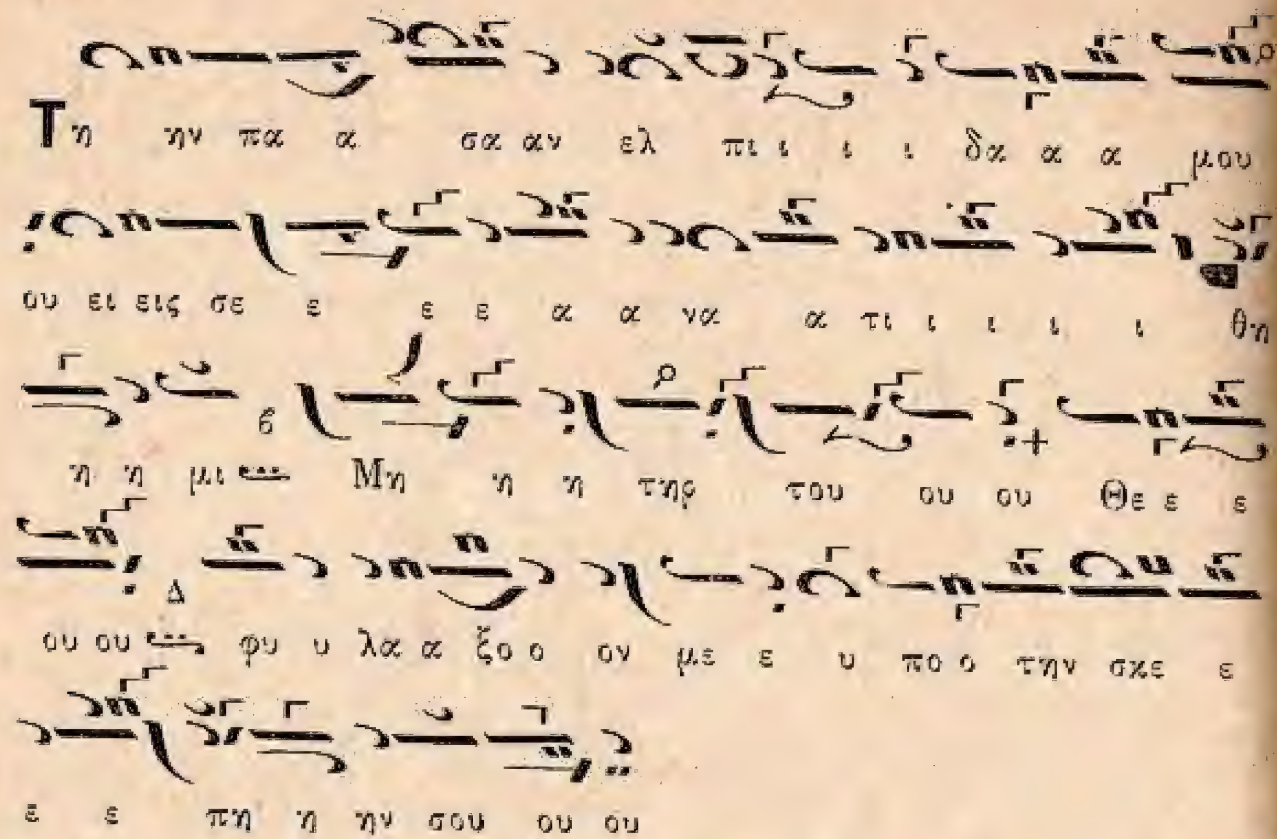 Τη ην πα α σα αν ελ πι ι ι ι ι δα α α μου
ου ει εις σε ε ε ε α α να α τι ι ι ι ι θη
η η μι Μη η η τηρ του ου ου Θε ε ε
ου ου φυ υ λα α ξο ο ον με ε υ πο ο την σκε ε
ε ε πη η ην σου ου ου